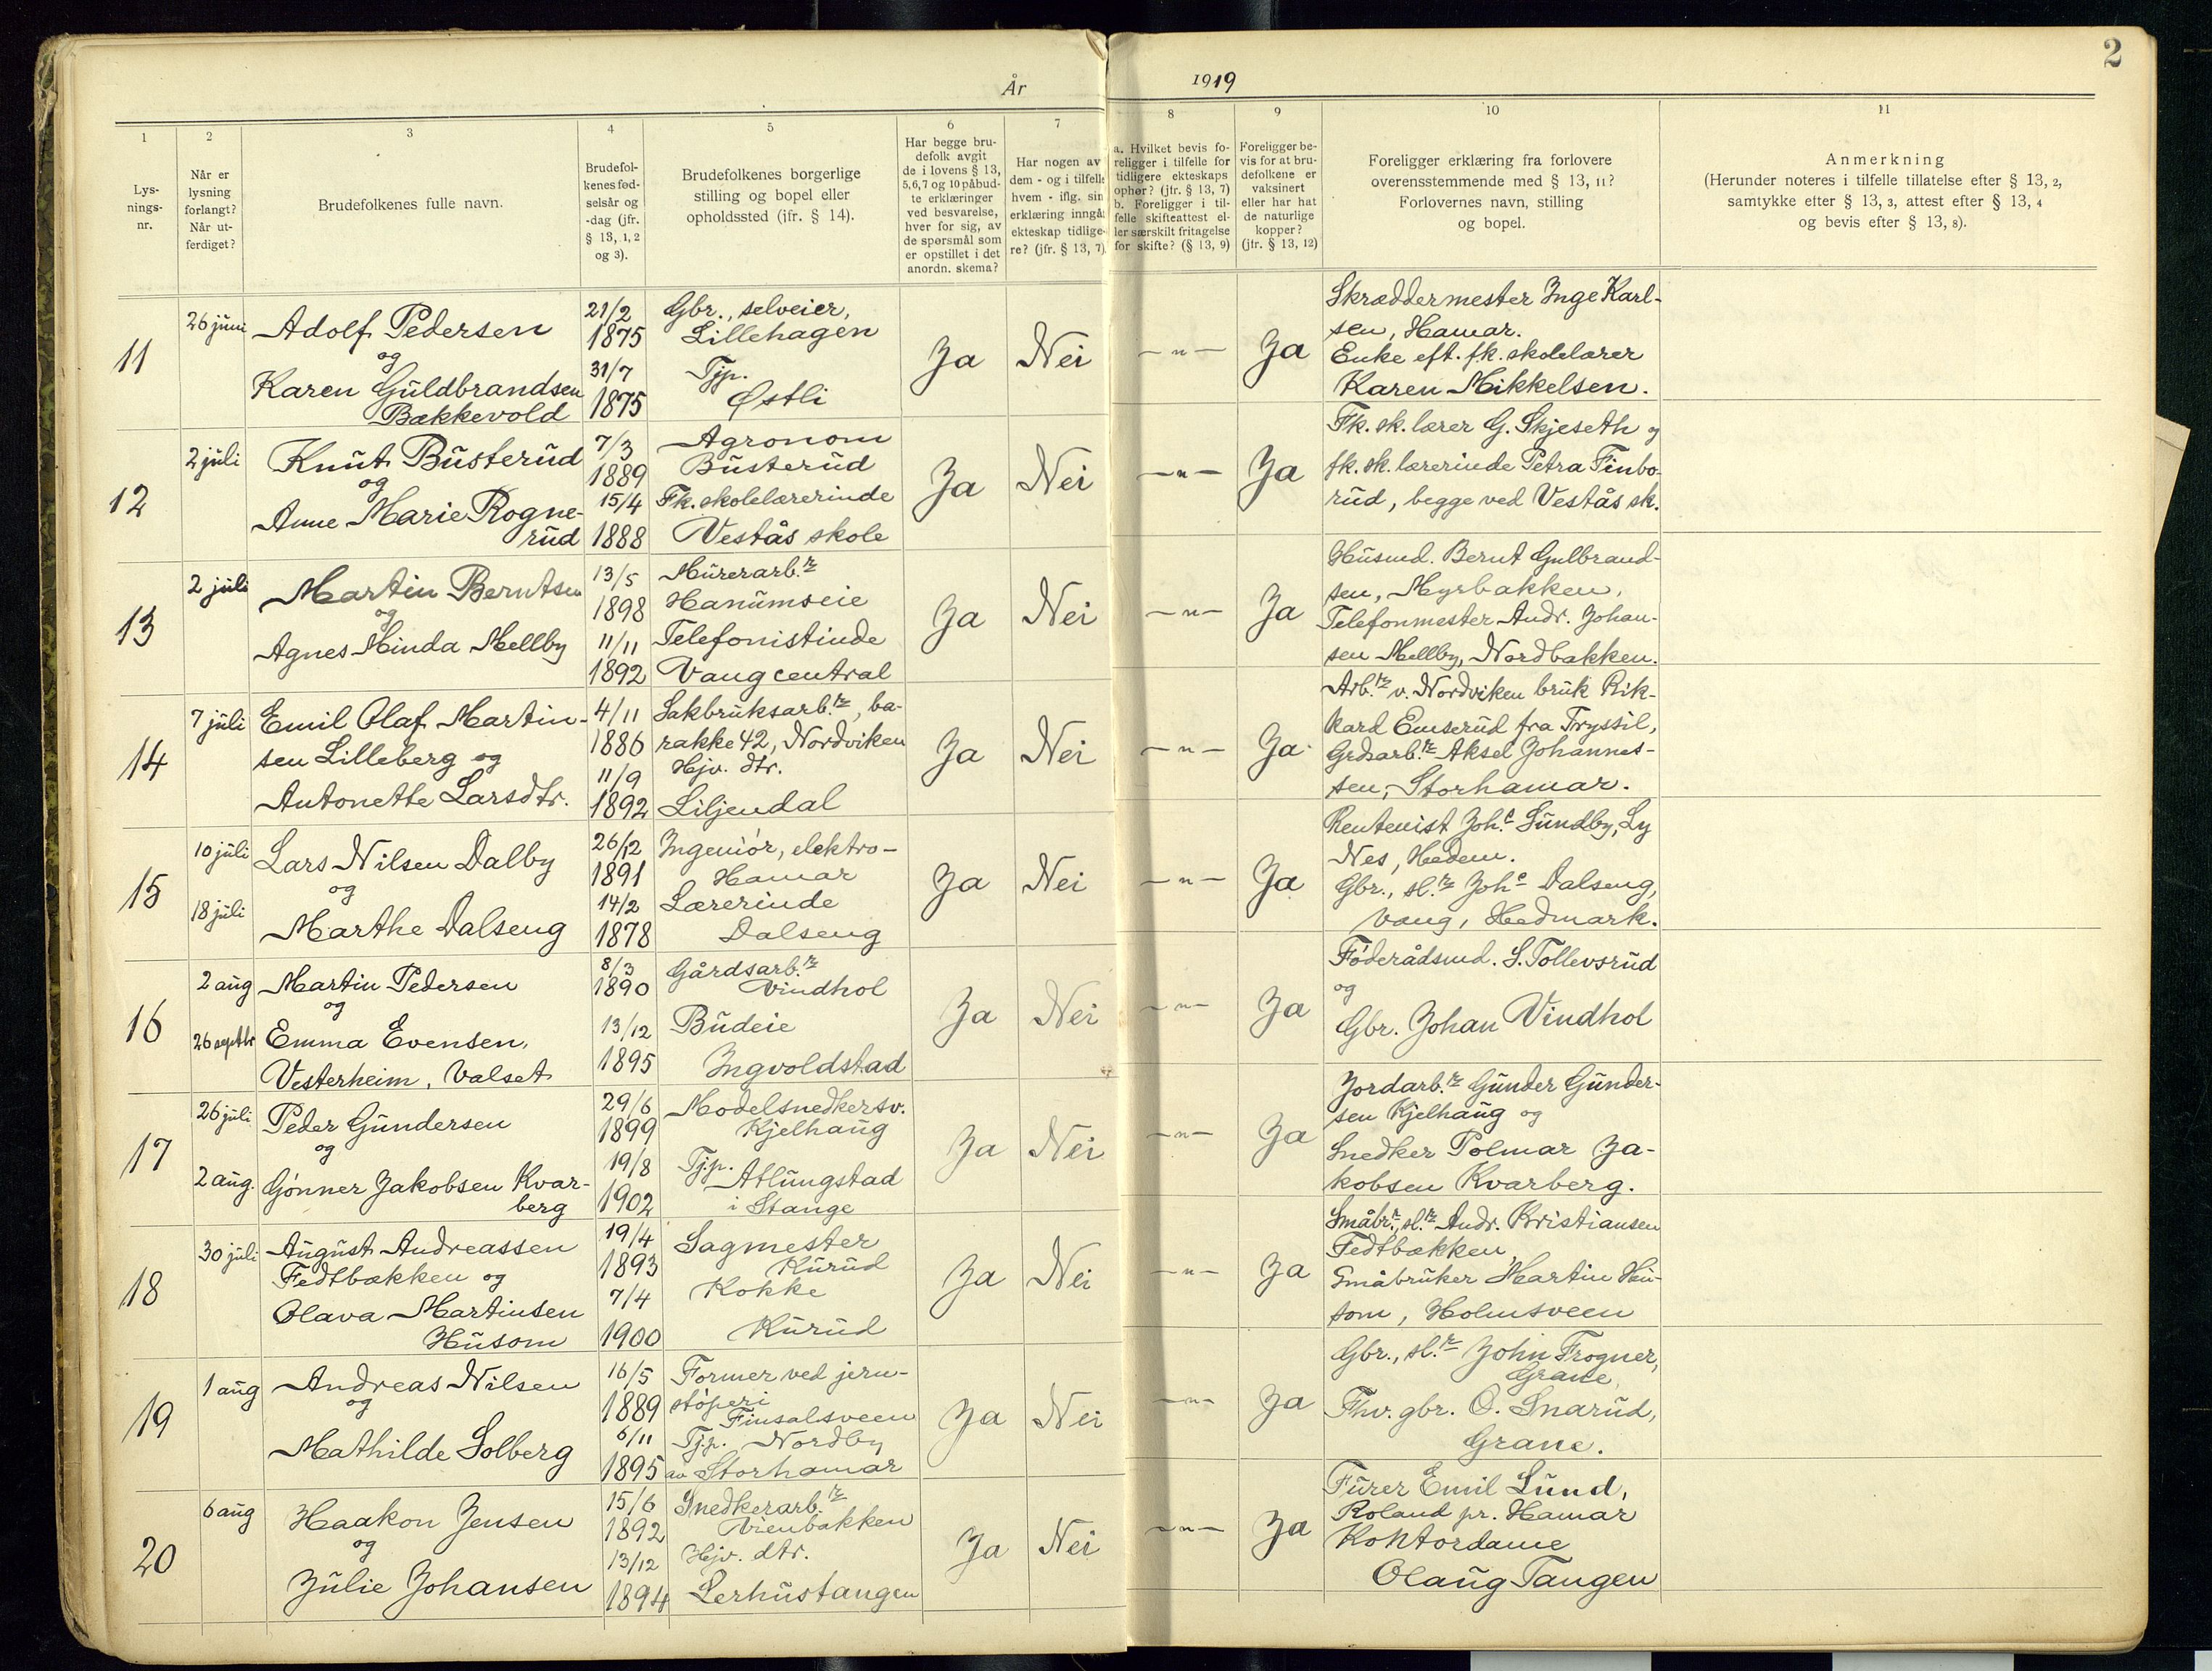 2
År 1919
1
2
3
4
5
6
7
8
9
10
11
Lys-
nings-
nr.
Når er
lysning
forlangt?
Når ut-
ferdiget?
Brudefolkenes fulle navn.
Brudefol-
kenes fød-
selsår og
-dag (jfr.
§ 13, 1, 2
og 3).
Brudefolkenes borgerlige
stilling og bopel eller
opholdssted (jfr. § 14).
Har begge bru-
defolk avgit
de i lovens § 13,
5,6,7 og 10 påbud-
te erklæringer
ved besvarelse,
hver for sig, av
de spørsmål som
er opstillet i det
anordn. skema?
Har nogen av
dem - og i tilfelle
hvem - iflg. sin
erklæring inngåt
ekteskap tidlige-
re? (jfr. § 13, 7)
a. Hvilket bevis fo-
religger i tilfelle for
tidligere ekteskaps
ophør? (jfr. § 13, 7)
b. Foreligger i til-
felle skifteattest el-
ler særskilt fritagelse
for skifte? (§ 13, 9)
Foreligger be-
vis for at bru-
defolkene er
vaksinert
eller har hat
de naturlige
kopper?
(jfr. § 13, 12)
Foreligger erklæring fra forlovere
overensstemmende med § 13, 11?
Forlovernes navn, stilling
og bopel.
Anmerkning
(Herunder noteres i tilfelle tillatelse efter § 13, 2,
samtykke efter § 13, 3, attest efter § 13, 4
og bevis efter § 13, 8).
11
26 juni
Adolf Pedersen
og
Karen Guldbrandsen
Bækkevold
21/2
1875
31/7
1875
Gbr., selveier,
Lillehagen
Tjp.
Østli
Ja
Nei
-"-
Ja
Skræddermester Inge Karl-
sen, Hamar.
Enke eft. fk. skolelærer
Karen Mikkelsen.
12
2 juli
Knut Busterud
og
Anne Marie Rogne-
rud
7/3
1889
15/4
1888
Agronom
Busterud
Fk. skolelærerinde
Vestås skole
Ja
Nei
-"-
Ja
Fk. sk. lærer G. Skjeseth og
fk. sk. lærerinde Petra Finbo-
rud, begge ved Vestås sk.
13
2 juli
Martin Berntsen
og
Agnes Minda Mellby
13/5
1898
11/11
1892
Murerarb.r
Hanumseie
Telefonistinde
Vang central
Ja
Nei
-"-
Ja
Husmd. Bernt Gulbrand-
sen, Myrbakken,
Telefonmester Andr. Johan-
sen Mellby, Nordbakken.
14
7 juli
Emil Olaf Martin-
sen Lilleberg og
Antonette Larsdtr.
4/11
1886
11/9
1892
Sakbruksarb.r, ba-
rakke 42, Nordviken
Hjv. dtr.
Liljendal
Ja
Nei
-"-
Ja
Arb.r v. Nordviken bruk Rik-
kard Emserud fra Tryssil,
Grdsarb.r Aksel Johannes-
sen, Storhamar.
15
10 juli
18 juli
Lars Nilsen Dalby
og
Marthe Dalseng
26/12
1891
14/2
1878
Ingeniør, elektro-
Hamar
Lærerinde
Dalseng
Ja
Nei
-"-
Ja
Rentenist Joh.s Sundby, Ly
Nes, Hedem.
Gbr., sl.r Joh.s Dalseng,
Vang, Hedmark.
16
2 aug
26 septbr
Martin Pedersen
og
Emma Evensen,
Vesterheim, Valset
8/3
1890
13/12
1895
Gårdsarb.r
Vindhol
Budeie
Ingvoldstad
Ja
Nei
-"-
Ja
Føderådsmd. S. Tollevsrud
og
Gbr. Johan Vindhol
17
26 juli
2 aug.
Peder Gundersen
og
Gønner Jakobsen Kvar-
berg
29/6
1899
19/8
1902
Modelsnedkersv.
Kjelhaug
Tjp.
Atlungstad
i Stange
Ja
Nei
-"-
Ja
Jordarb.r Gunder Gunder-
sen Kjelhaug og
Snedker Polmar Ja-
kobsen Kvarberg.
18
30 juli
August Andreassen
Fedtbækken og
Olava Martinsen
Husom
19/4
1893
7/4
1900
Sagmester
Kurud
Kokke
Kurud
Ja
Nei
-"-
Ja
Småbr., sl.r Andr. Kristiansen
Fedtbækken,
Småbruker Martin Hu-
som, Holmsveen
19
1 aug
Andreas Nilsen
og
Mathilde Solberg
16/5
1889
6/11
1895
Former ved jern-
støperi
Finsalsveen
Tjp. Nordby
av Storhamar
Ja
Nei
-"-
Ja
Gbr., sl.r John Frogner,
Grane,
Fhv. gbr. O. Snarud,
Grane.
20
6 aug
Haakon Jensen
og
Julie Johansen
15/6
1892
13/12
1894
Snedkerarb.r
Vienbakken
Hjv. dtr.
Lerhustangen
Ja
Nei
-"-
Ja
Furer Emil Lund,
Roland pr. Hamar
Kontordame
Olaug Tangen